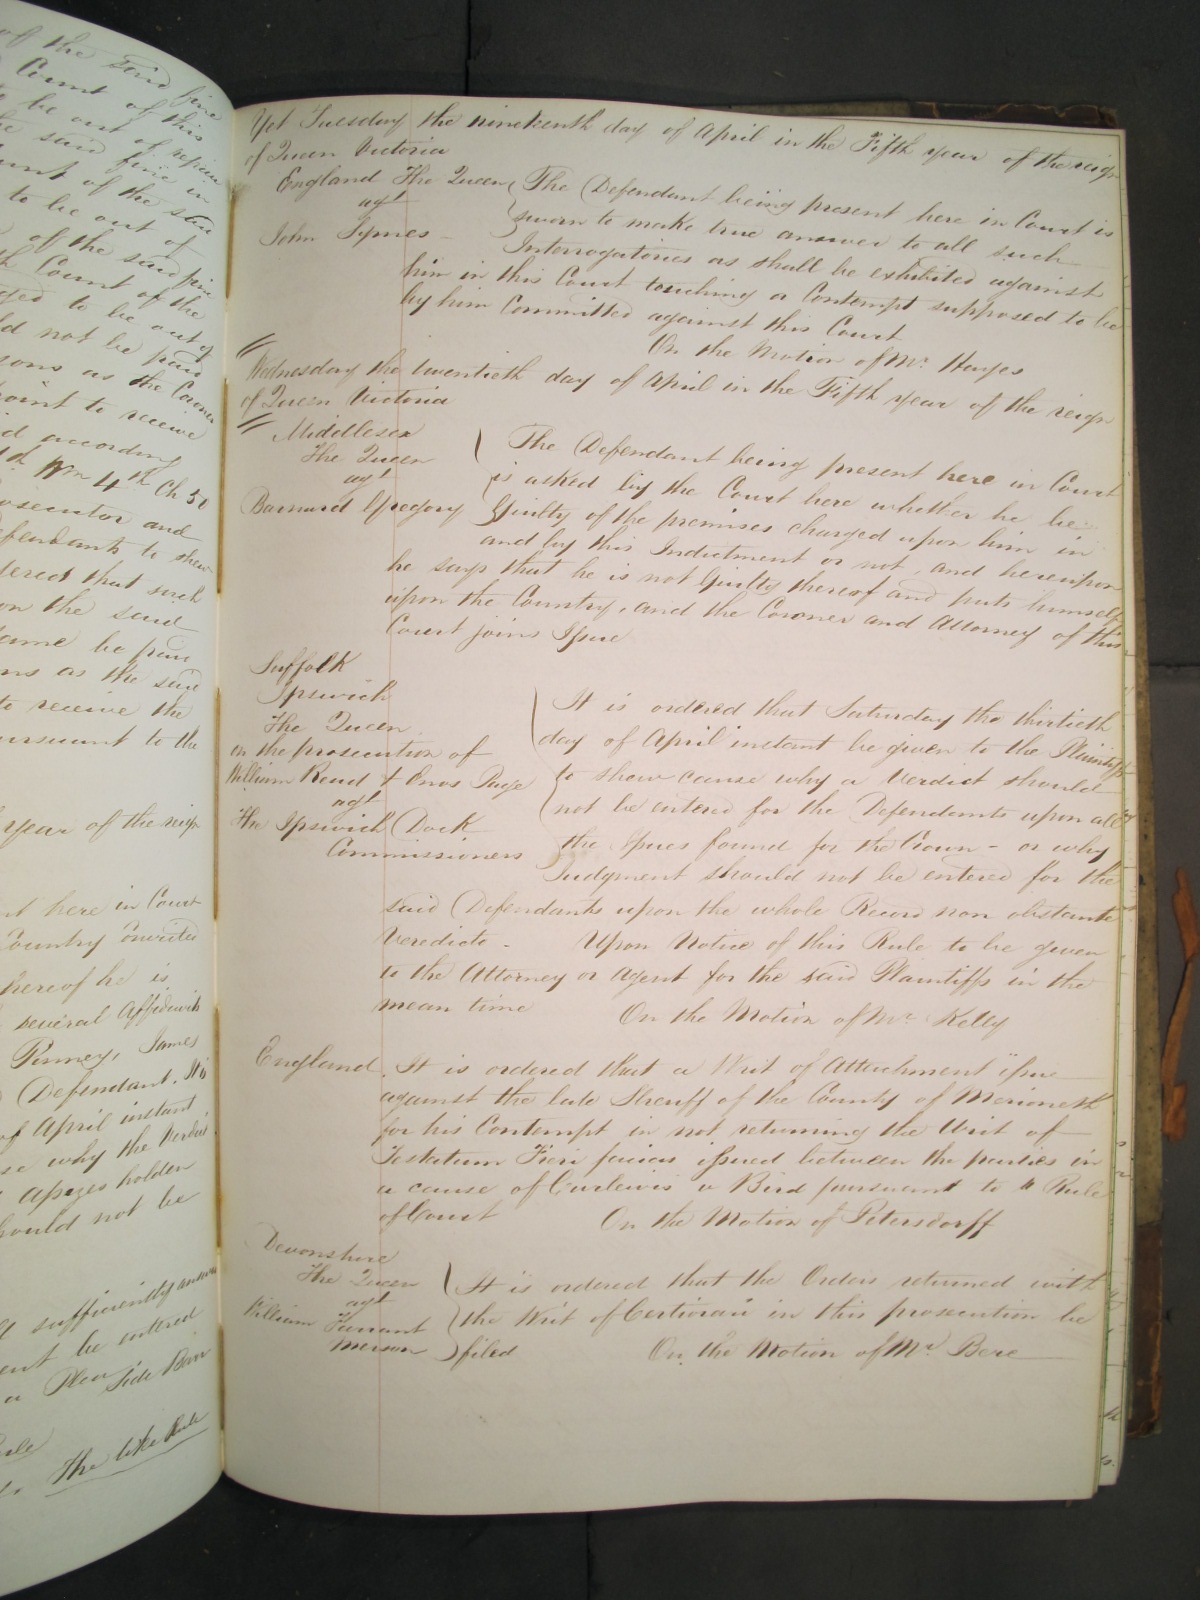 of the said fine
Court of this
to be out of repair
the said fine in
Court of the said
to be out of
of the said fine
Court of the
to be out of
not be paid
persons as the Coroner
appoint to receive
according
Wm 4th Ch 50
prosecutor and
Defendants to shew
ordered that such
on the said
same be paid
as the said
to receive the
pursuant to the
year of the reign
here in Court
Country Convicted
hereof he is
several Affidavits
Pinney, James
Defendant. It is
of April instant
why the Verdict
Assizes holden
should not be
sufficiently answer
be entered
a Plea Side Bar
Rule
The like Rule
Yet Tuesday the nineteenth day of April in the Fifth year of the reign
of Queen Victoria
England The Queen
agt
John Symes
The Defendant being present here in Court is
sworn to make true answer to all such
Interrogatories as shall be exhibited against
him in this Court touching a Contempt supposed to be
by him Committed against this Court
On the Motion of Mr. Hayes
Wednesday the twentieth day of April in the Fifth year of the reign
of Queen Victoria
Middlesex
The Queen
agt
Barnard Gregory
The Defendant being present here in Court
is asked by the Court here whether he be
Guilty of the premises charged upon him in
and by this Indictment or not, and hereupon
he says that he is not Guilty thereof and puts himself
upon the Country, and the Coroner and Attorney of this
Court joins Issue
Suffolk
Ipswich
The Queen
on the prosecution of
William Read & Enos Page
agt
The Ipswich Dock
Commissioners
It is ordered that Saturday the thirtieth
day of April instant be given to the Plaintiffs
to shew cause why a Verdict should
not be entered for the Defendants upon all
the Issues found for the Crown - or why
Judgment should not be entered for the
said Defendants upon the whole Record non obstante
Veredicto - Upon Notice of this Rule to be given
to the Attorney or Agent for the said Plaintiffs in the
mean time On the Motion of Mr. Kelly
England. It is ordered that a Writ of Attachment issue
against the late Sheriff of the County of Merioneth
for his Contempt in not returning the Writ of
Testatum Fieri facias issued between the parties in
a cause of Curlewis v Bird pursuant to a Rule
of Court On the Motion of Petersdorff
Devonshire
The Queen
agt
William Farrant
Merson
It is ordered that the Orders returned with
the Writ of Certiorari in this prosecution be
filed On the Motion of Mr. Bere